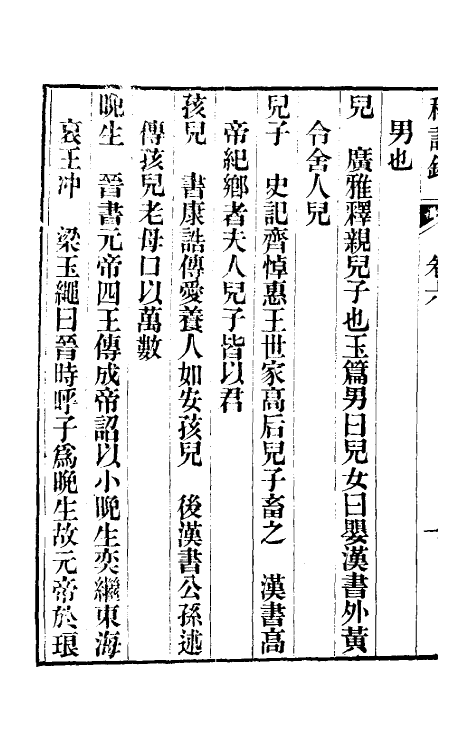 稱謂錄 卷六 一
男也
兒 廣雅釋親兒子也玉篇男曰兒女曰嬰漢書外黃
令舍人兒
兒子 史記齊悼惠王世家高后兒子畜之 漢書高
帝紀鄉者夫人兒子皆以君
孩兒 書康誥傳愛養人如安孩兒 後漢書公孫述
傳孩兒老母口以萬數
晚生 晉書元帝四王傳成帝詔以小晚生奕繼東海
哀王冲 梁玉繩曰晉時呼子爲晚生故元帝於琅